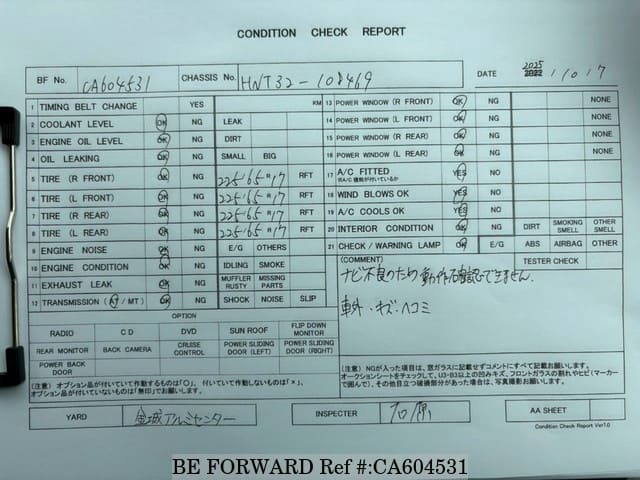 CONDITION CHECK REPORT
BF No. CA604531 CHASSIS No. HNT32-108469 DATE 2025 2022 / 10 17
1 TIMING BELT CHANGE YES KM 13 POWER WINDOW (R FRONT) OK NG NONE
2 COOLANT LEVEL OK NG LEAK 14 POWER WINDOW (L FRONT) OK NG NONE
3 ENGINE OIL LEVEL OK NG DIRT 15 POWER WINDOW (R REAR) OK NG NONE
4 OIL LEAKING OK NG SMALL BIG 16 POWER WINDOW (L REAR) OK NG NONE
5 TIRE (R FRONT) OK NG 225/65R17 RFT 17 A/C FITTED ※A/C 機能が付いているか YES NO
6 TIRE (L FRONT) OK NG 225/65R17 RFT 18 WIND BLOWS OK YES NO
7 TIRE (R REAR) OK NG 225/65R17 RFT 19 A/C COOLS OK YES NO
8 TIRE (L REAR) OK NG 225/65R17 RFT 20 INTERIOR CONDITION OK NG DIRT SMOKING SMELL OTHER SMELL
9 ENGINE NOISE OK NG E/G OTHERS 21 CHECK / WARNING LAMP OK NG E/G ABS AIRBAG OTHER
10 ENGINE CONDITION OK NG IDLING SMOKE (COMMENT) TESTER CHECK
11 EXHAUST LEAK OK NG MUFFLER RUSTY MISSING PARTS ナビ不良のため動作確認できません.
12 TRANSMISSION (AT / MT) OK NG SHOCK NOISE SLIP 車外・キズ・ヘコミ
OPTION
RADIO CD DVD SUN ROOF FLIP DOWN MONITOR
REAR MONITOR BACK CAMERA CRUISE CONTROL POWER SLIDING DOOR (LEFT) POWER SLIDING DOOR (RIGHT)
POWER BACK DOOR
(注意) オプション品が付いていて作動するものは「○」、付いていて作動しないものは「×」、
オプションが付いていないものは「無印」でお願いします。
(注意) NGが入った項目は、窓ガラスに記載せずコメントにすべて記載お願いします。
オークションシートをチェックして、U3･B3以上の凹みキズ、フロントガラスの割れやヒビ(マーカー
で囲んで)、その他目立つ破損部分があった場合は、写真撮影お願いします。
YARD 金城アルミセンター INSPECTER 石原 AA SHEET
Condition Check Report Ver1.0
BE FORWARD Ref #:CA604531